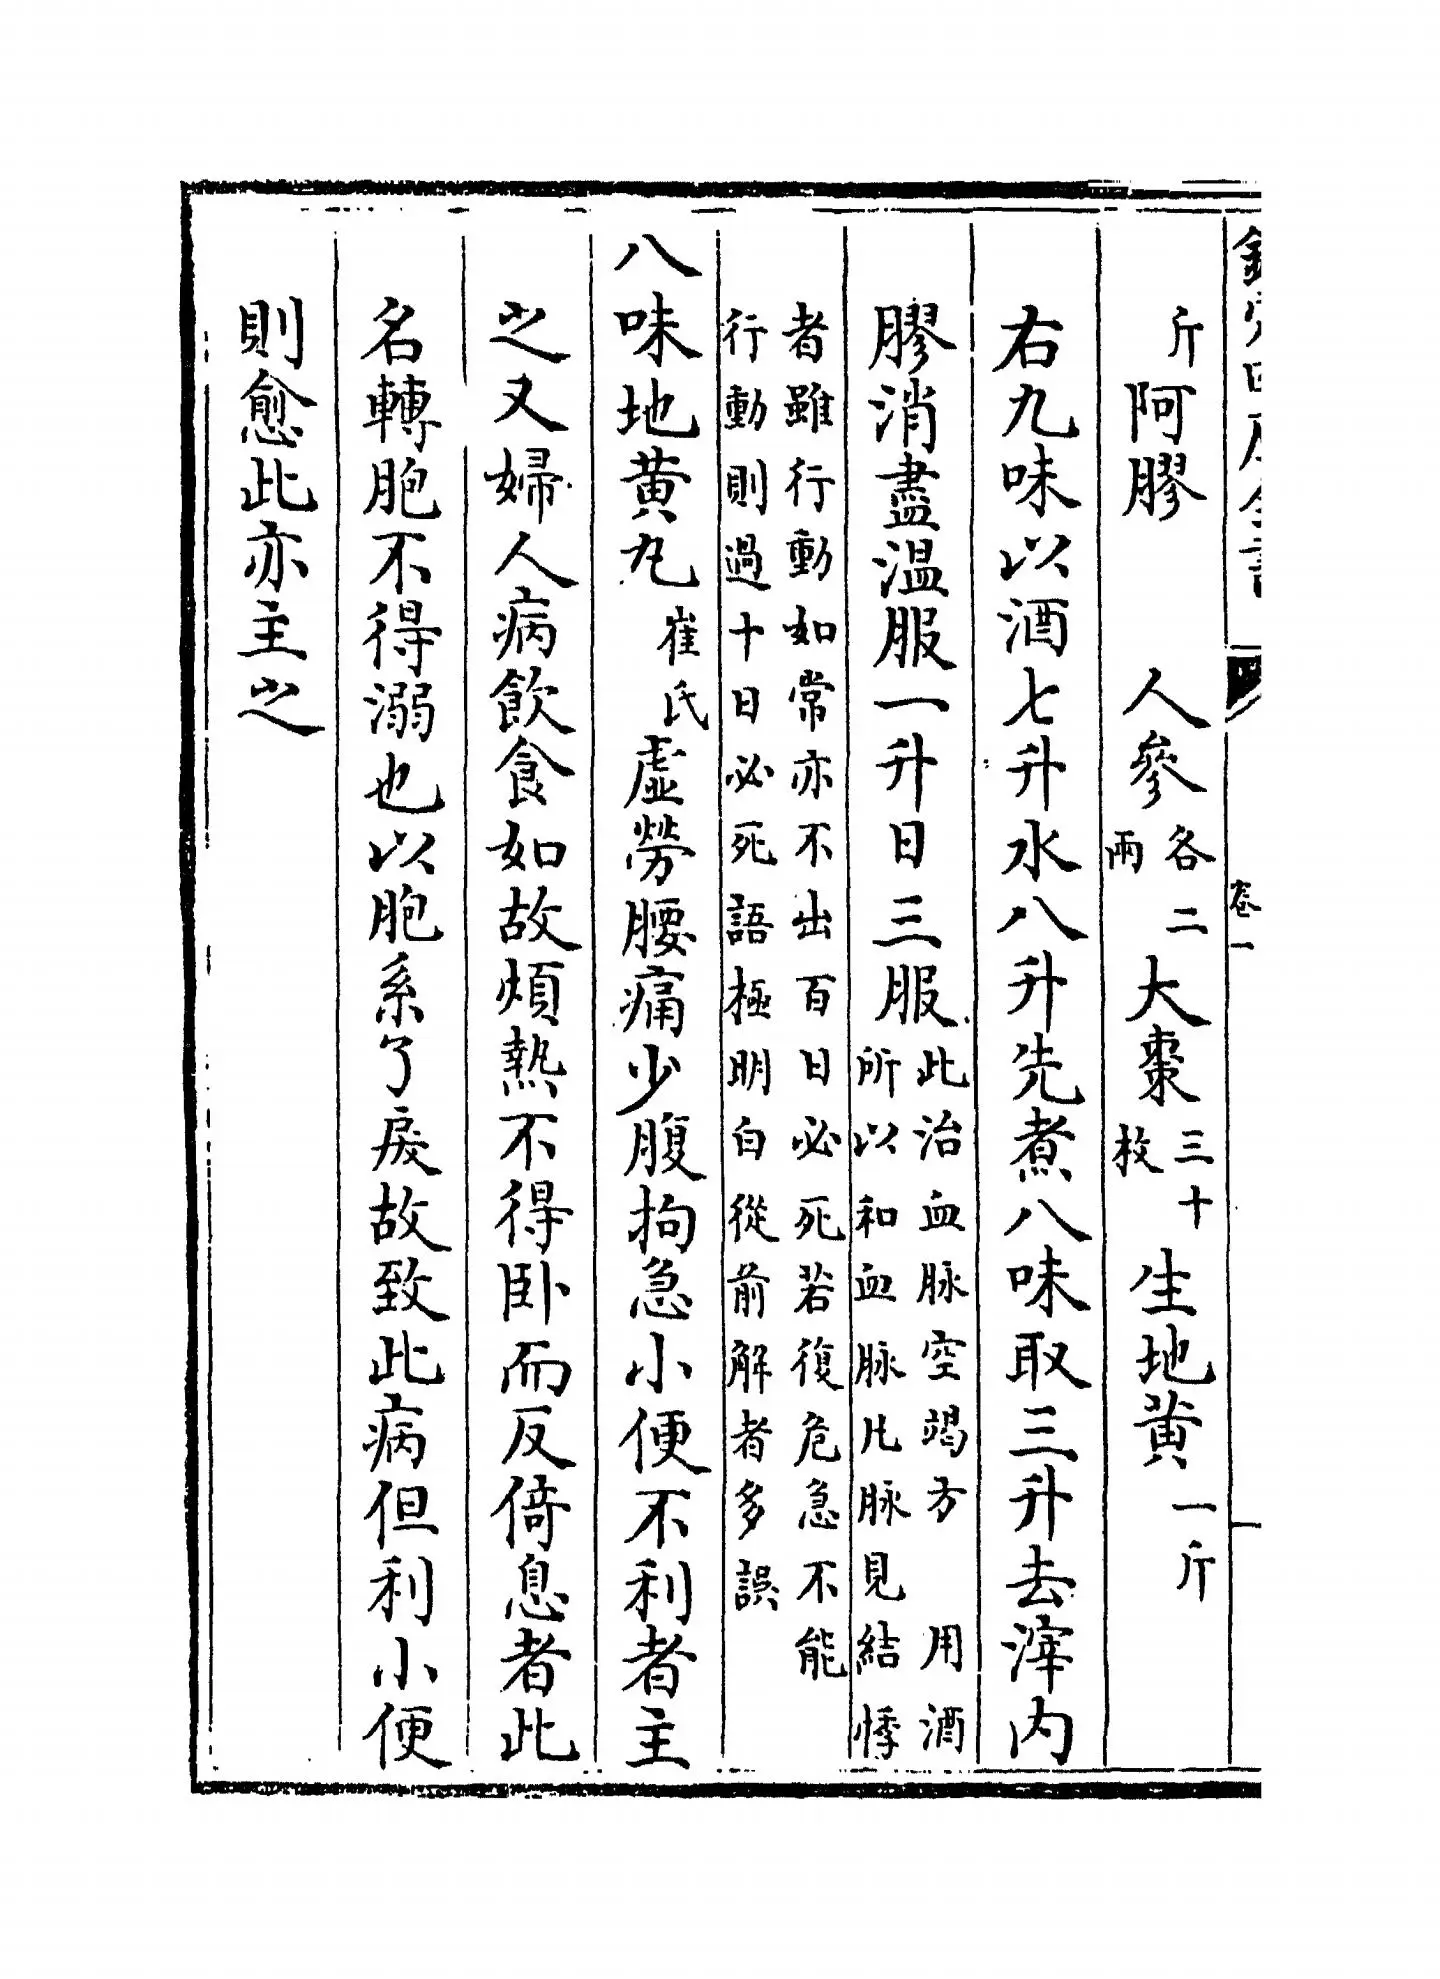 欽定四庫全書 卷一
斤 阿膠 人參各二兩 大棗三十枚 生地黄一斤
右九味以酒七升水八升先煮八味取三升去滓内
膠消盡温服一升日三服
此治血脉空竭方 用酒
所以和血脉凡脉見結悸
者雖行動如常亦不出百日必死若復危急不能
行動則過十日必死語極明白從前解者多誤
八味地黄丸崔氏虚勞腰痛少腹拘急小便不利者主
之又婦人病飲食如故煩熱不得卧而反倚息者此
名轉胞不得溺也以胞系了戾故致此病但利小便
則愈此亦主之